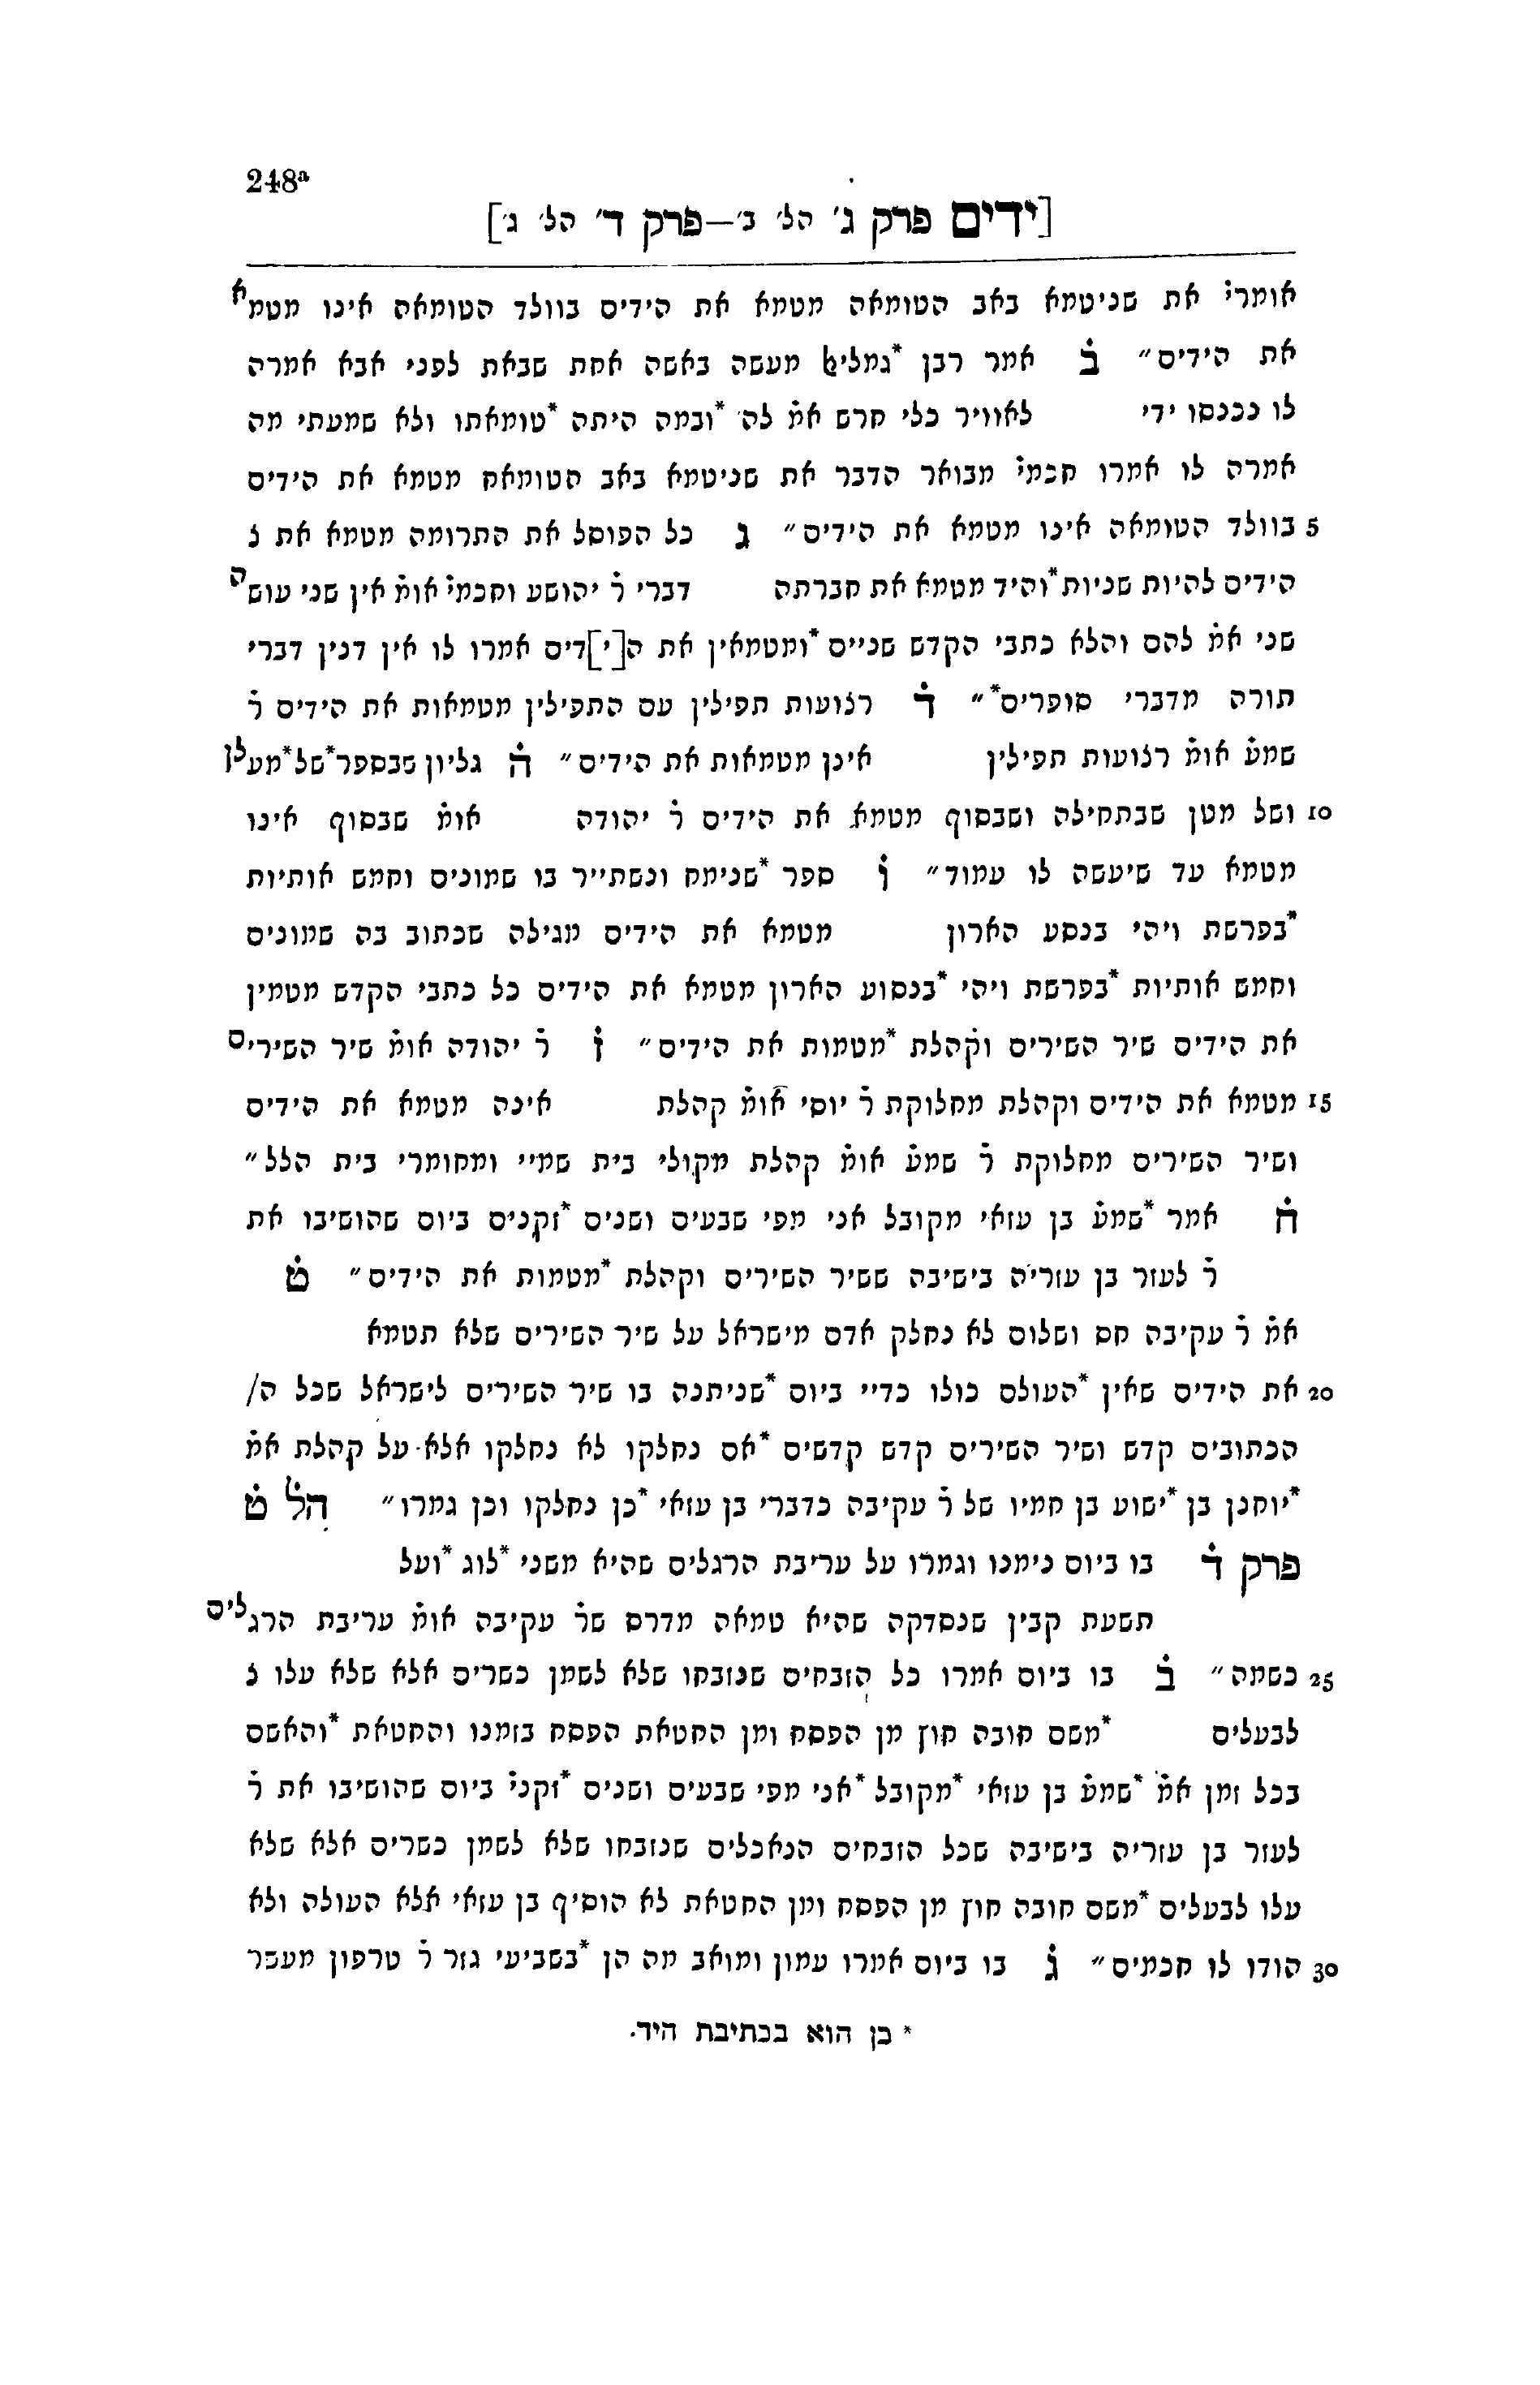 248ᵃ
[ידים פרק ג׳ הל׳ ב׳—פרק ד׳ הל׳ ג׳]
אומרי̇ את שניטמא באב הטומאה מטמא את הידים בוולד הטומאה אינו מטמא
את הידים״ ב̇ אמר רבן *גמליאל מעשה באשה אחת שבאת לפני אבא אמרה
לו נכנסו ידי לאוויר כלי חרש אמ̇ לה *ובמה היתה *טומאתו ולא שמעתי מה
אמרה לו אמרו חכמי̇ מבואר הדבר את שניטמא באב הטומאה מטמא את הידים
5 בוולד הטומאה אינו מטמא את הידים״ ג̇ כל הפוסל את התרומה מטמא את נ
הידים להיות שניות *והיד מטמא את חברתה דברי ר̇ יהושע וחכמי̇ אומ̇ אין שני עושה
שני אמ̇ להם והלא כתבי הקדש שניים *ומטמאין את ה[י]דים אמרו לו אין דנין דברי
תורה מדברי סופרים*״ ד̇ רצועות תפילין עם התפילין מטמאות את הידים ר̇
שמע̇ אומ̇ רצועות תפילין אינן מטמאות את הידים״ ה̇ גליון שבספר *של *מעלן
10 ושל מטן שבתחילה ושבסוף מטמא את הידים ר̇ יהודה אומ̇ שבסוף אינו
מטמא עד שיעשה לו עמוד״ ו̇ ספר *שנימח ונשתייר בו שמונים וחמש אותיות
*בפרשת ויהי בנסע הארון מטמא את הידים מגילה שכתוב בה שמונים
וחמש אותיות *בפרשת ויהי *בנסוע הארון מטמא את הידים כל כתבי הקדש מטמין
את הידים שיר השירים וקהלת *מטמות את הידים״ ז̇ ר̇ יהודה אומ̇ שיר השירים
15 מטמא את הידים וקהלת מחלוקת ר̇ יוסי אומ̇ קהלת אינה מטמא את הידים
ושיר השירים מחלוקת ר̇ שמע̇ אומ̇ קהלת מקולי בית שמיי ומחומרי בית הלל״
ח̇ אמר *שמע̇ בן עזאי מקובל אני מפי שבעים ושנים *זקנים ביום שהושיבו את
ר̇ לעזר בן עזריה בישיבה ששיר השירים וקהלת *מטמות את הידים״ ט̇
אמ̇ ר̇ עקיבה חס ושלום לא נחלק אדם מישראל על שיר השירים שלא תטמא
20 את הידים שאין *העולם כולו כדיי ביום *שניתנה בו שיר השירים לישראל שכל ה/
הכתובים קדש ושיר השירים קדש קדשים *אם נחלקו לא נחלקו אלא על קהלת אמ̇
*יוחנן בן *ישוע בן חמיו של ר̇ עקיבה כדברי בן עזאי *כן נחלקו וכן גמרו״ הל̇ ט̇
פרק ד̇ בו ביום נימנו וגמרו על עריבת הרגלים שהיא משני *לוג *ועל
תשעת קבין שנסדקה שהיא טמאה מדרס שר̇ עקיבה אומ̇ עריבת הרגלים
25 כשמה״ ב̇ בו ביום אמרו כל הזבחים שנזבחו שלא לשמן כשרים אלא שלא עלו נ
לבעלים *משם חובה חוץ מן הפסח ומן החטאת הפסח בזמנו והחטאת *והאשם
בכל זמן אמ̇ *שמע̇ בן עזאי *מקובל *אני מפי שבעים ושנים *זקני̇ ביום שהושיבו את ר̇
לעזר בן עזריה בישיבה שכל הזבחים הנאכלים שנזבחו שלא לשמן כשרים אלא שלא
עלו לבעלים *משם חובה חוץ מן הפסח ומן החטאת לא הוסיף בן עזאי אלא העולה ולא
30 הודו לו חכמים״ ג̇ בו ביום אמרו עמון ומואב מה הן *בשביעי גזר ר̇ טרפון מעשר
* כן הוא בכתיבת היד.